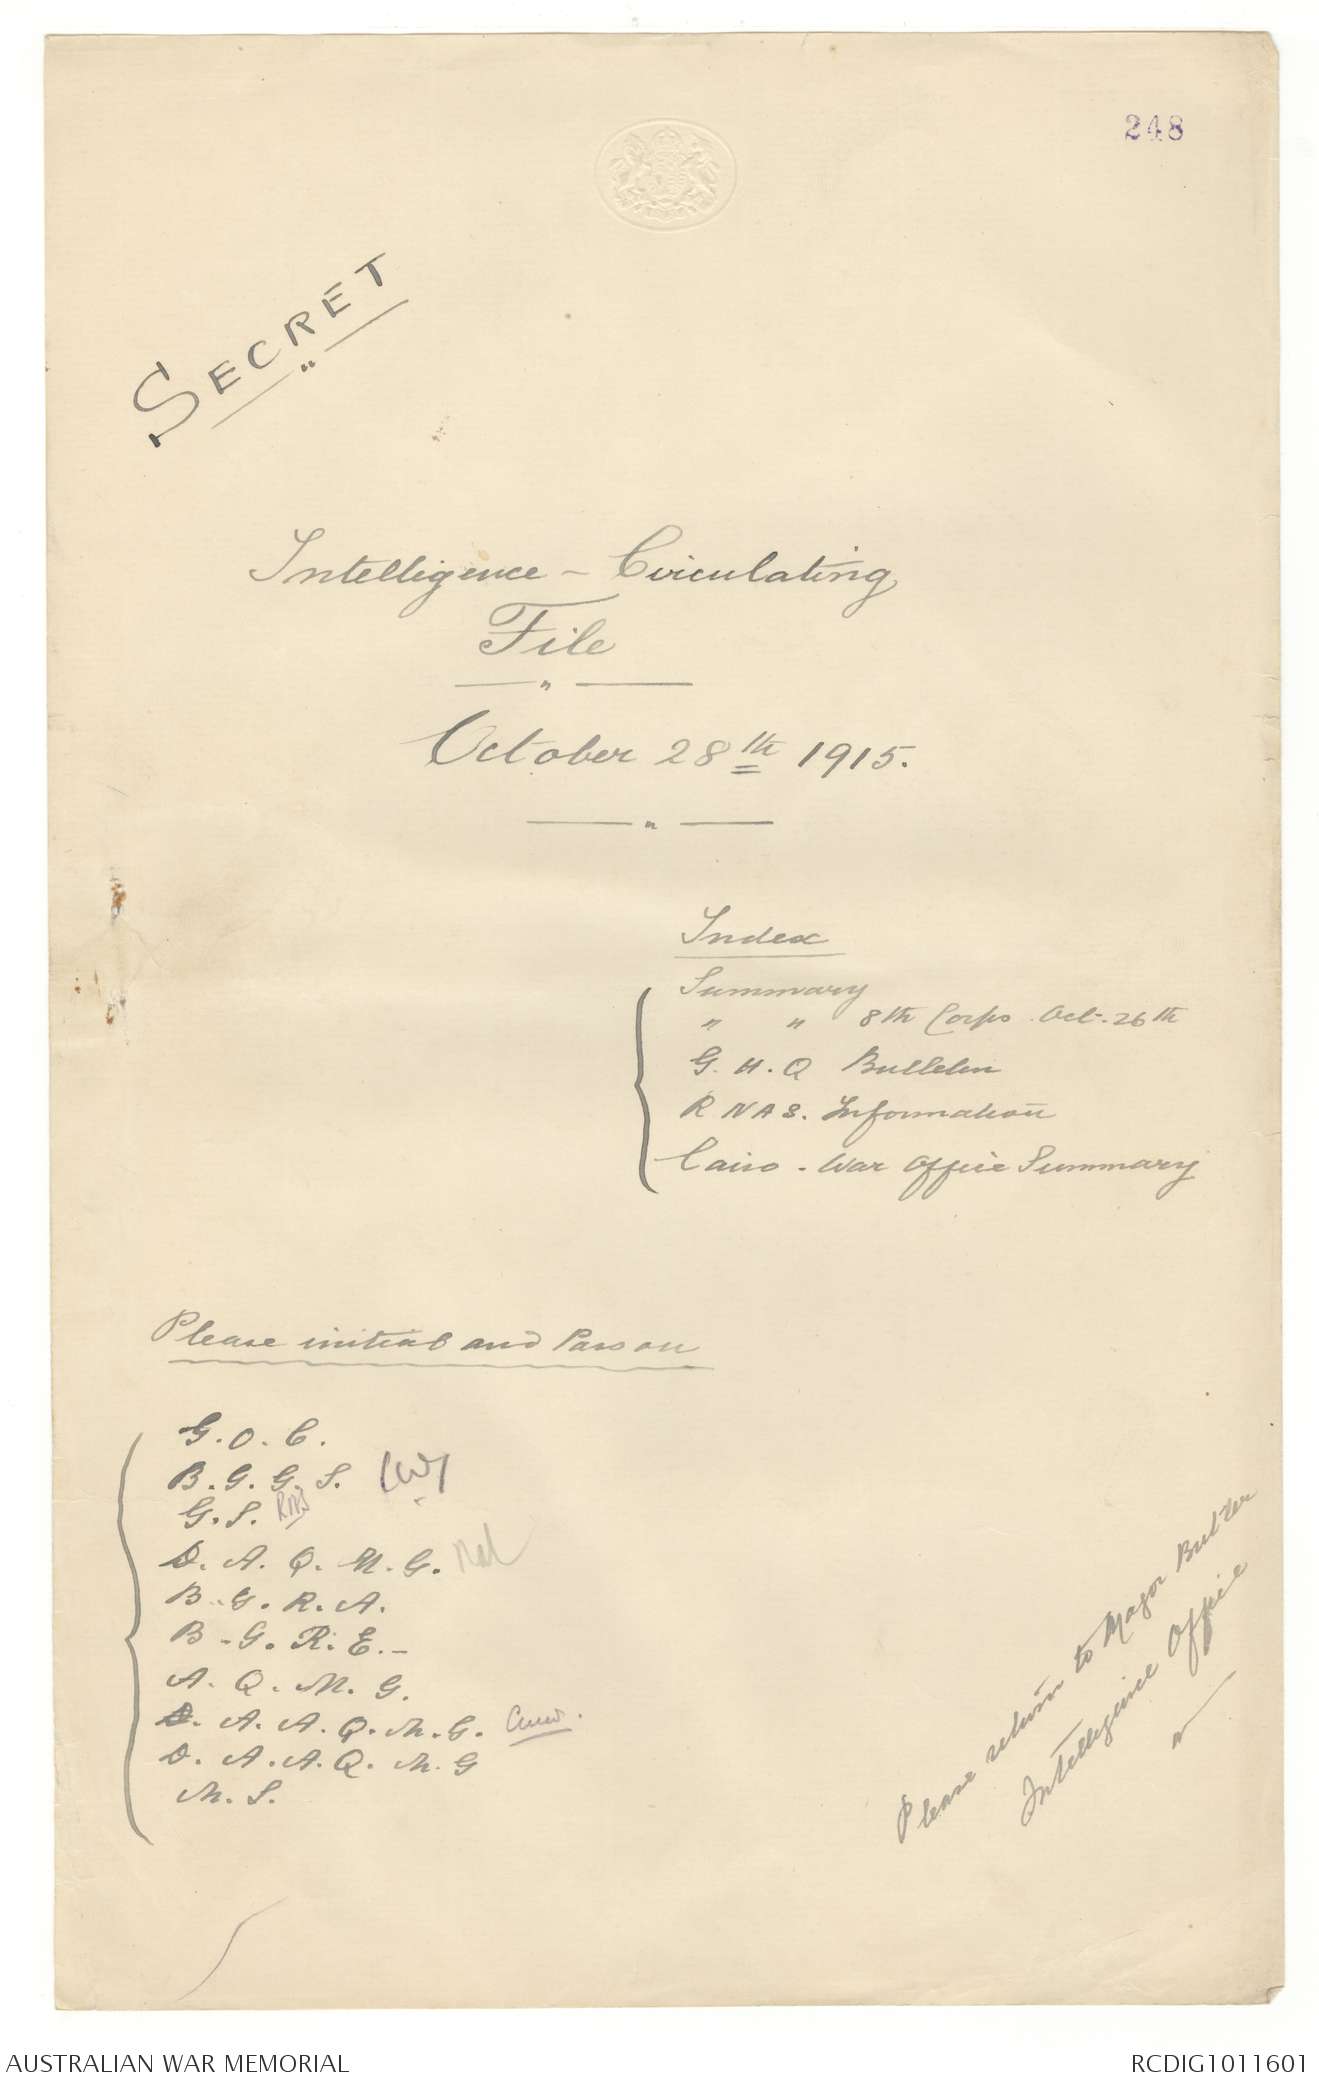 248
SECRET
"
Intelligence - Circulating
File
"
October 28th 1915.
"
Index
Summary
" " 8th Corps. Oct. 26th
G. H. Q Bulletin
R NAS. Information
Cairo - War Office Summary
Please initial and Pass on
G. O. C.
B. G. G. S.
G. S.
D. A. Q. M. G.
B. G. R. A.
B. G. R. E. -
A. Q. M. G.
D. A. A. Q. M. G.
D. A. A. Q. M. G
M. S.
Please return to Major Butler
Intelligence Office
"
AUSTRALIAN WAR MEMORIAL
RCDIG1011601